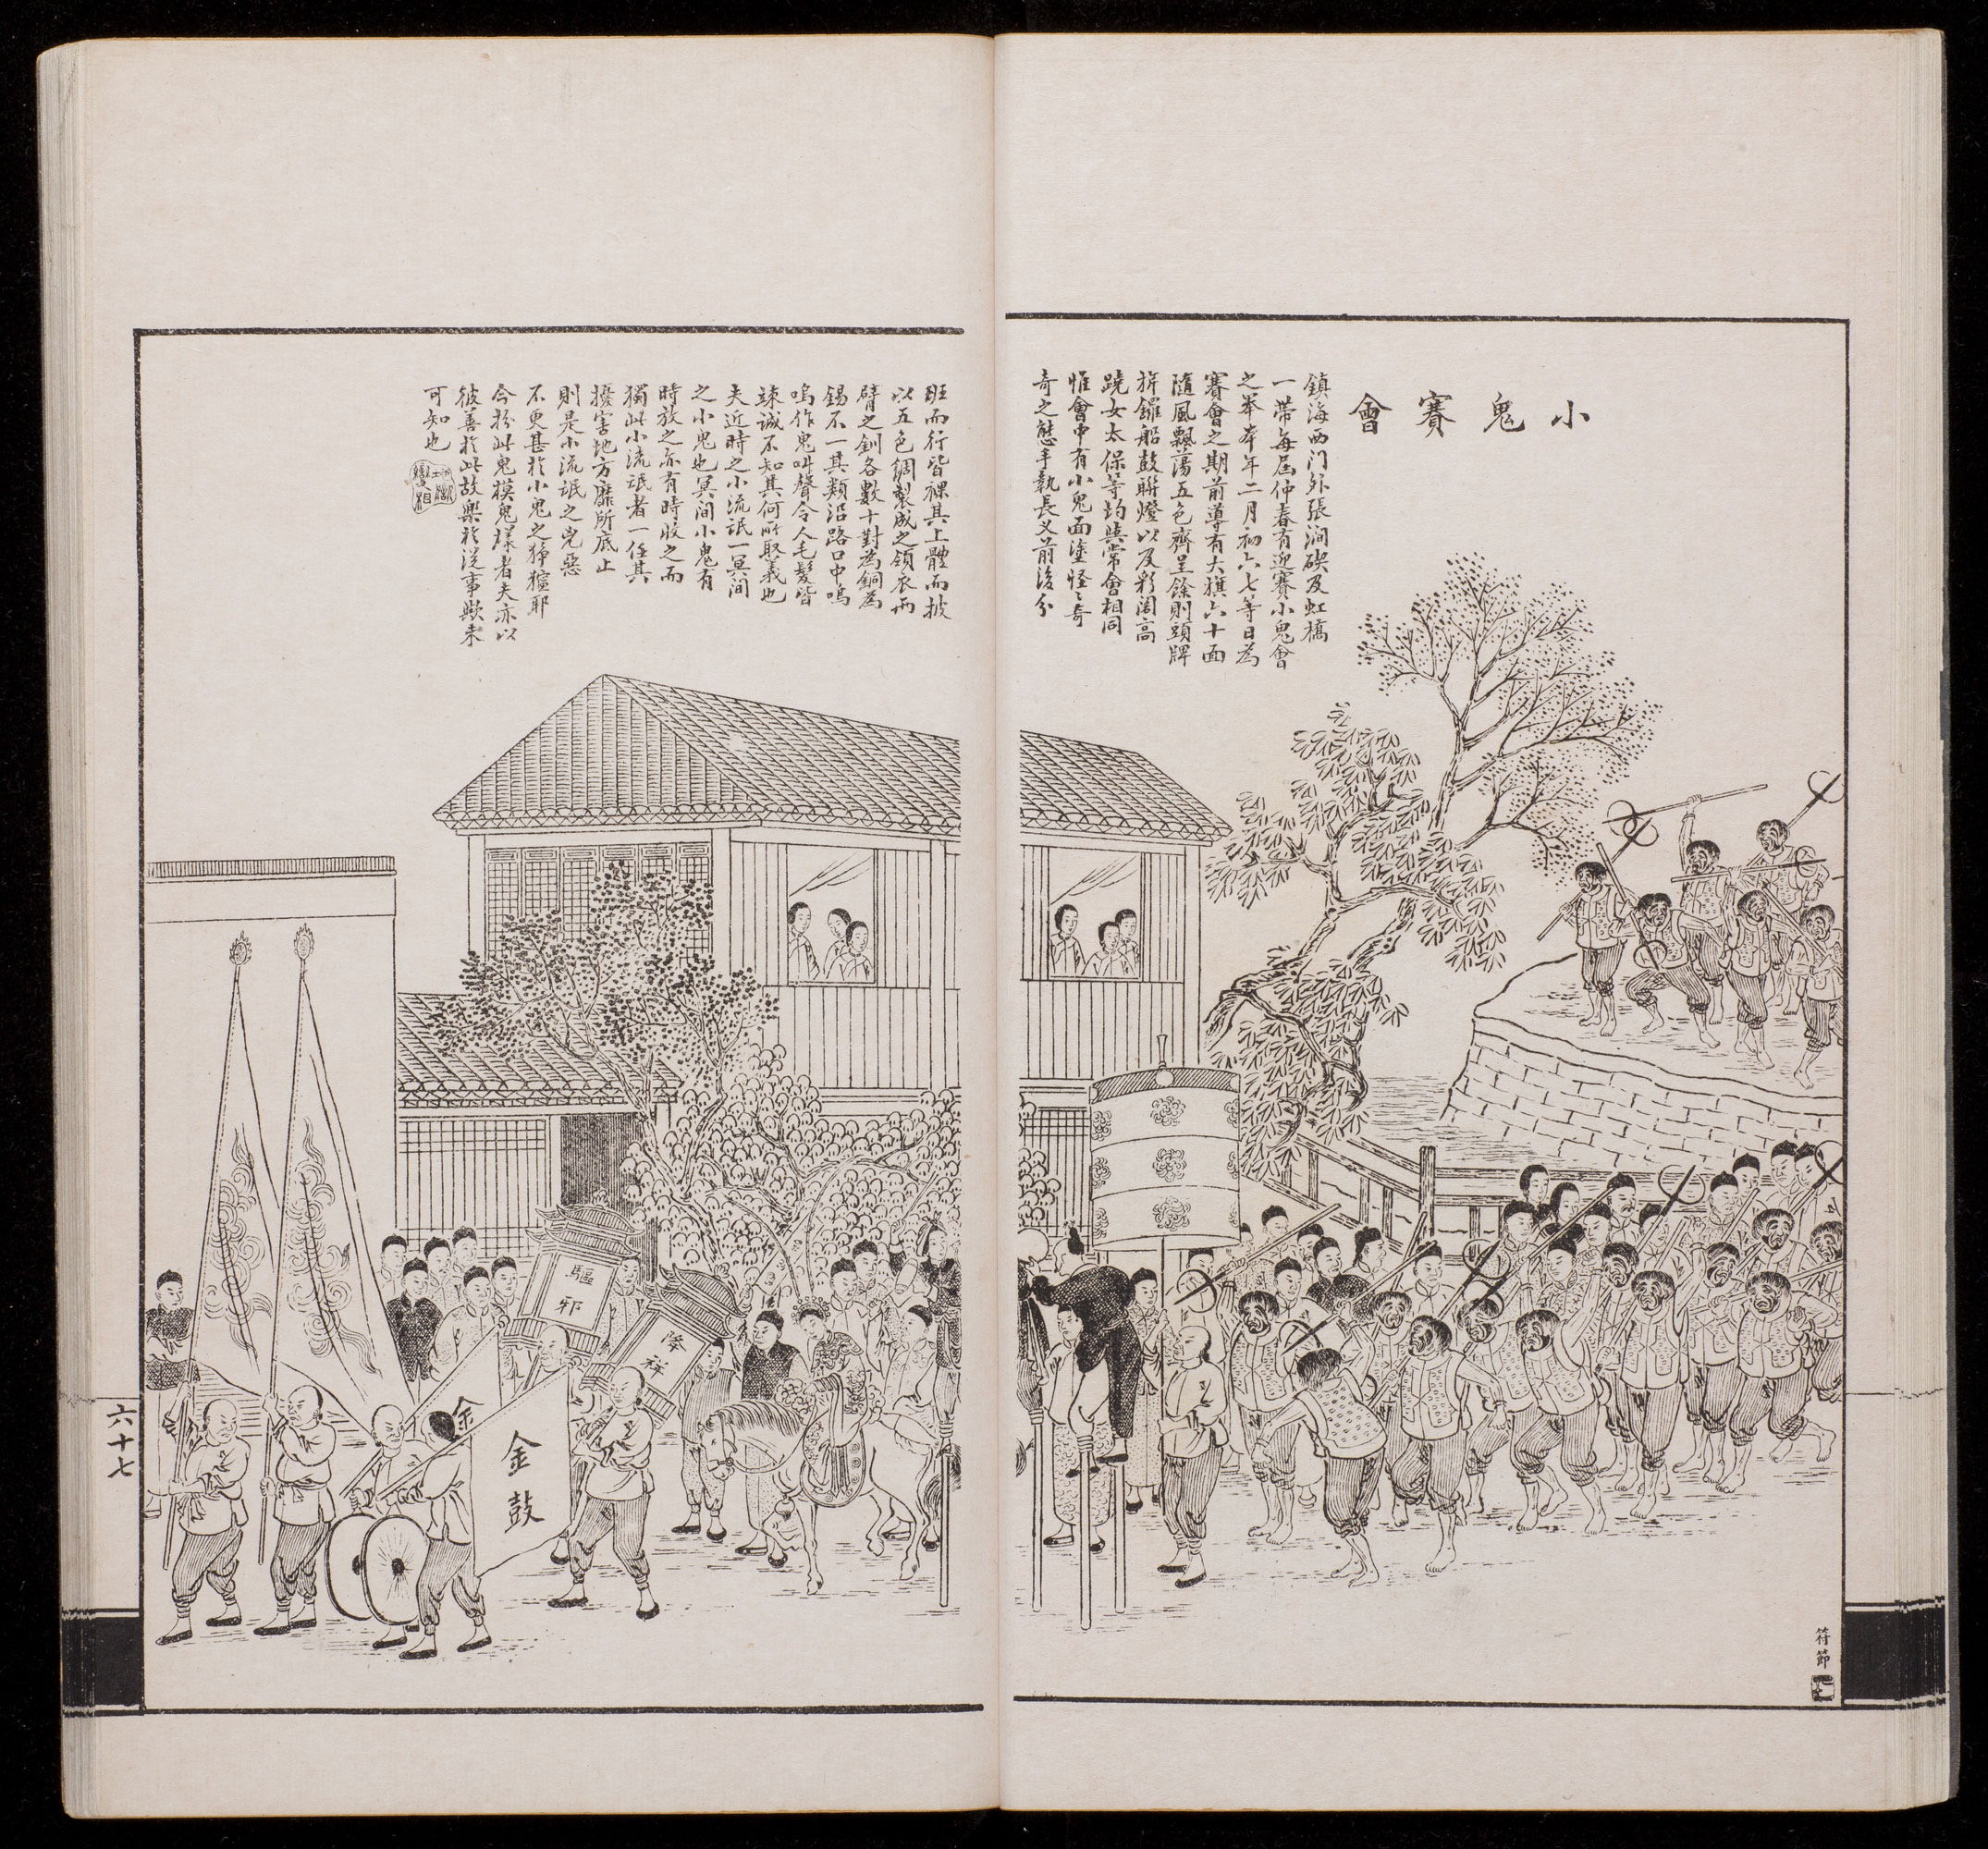 小鬼賽會
鎮海西门外張澗碶及虹橋
一帶每屆仲春有迎賽小鬼會
之举本年二月初六七等日為
賽會之期前導有大旗六十面
隨風飄蕩五色齊呈餘則頭牌
旂鑼船鼓聯燈以及彩閣高
蹺女太保等均與常會相同
惟會中有小鬼面塗怪怪奇
奇之態手執長义前後分
班而行皆裸其上體而披
以五色綢製成之領衣而
臂之釧各數十對為銅為
錫不一其類沿路口中嗚
嗚作鬼叫聲令人毛髮皆
竦誠不知其何所取義也
夫近時之小流氓一冥间
之小鬼也冥间小鬼有
時放之亦有時收之而
獨此小流氓者一任其
擾害地方靡所底止
則是小流氓之兇惡
不更甚於小鬼之猙獰耶
今扮此鬼模鬼樣者夫亦以
彼善於此故樂於從事歟未
可知也
驅邪
降祥
金
金鼓
符節
六十七